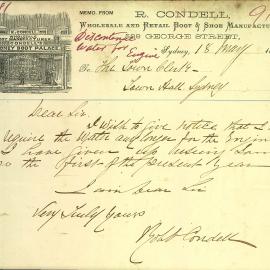 MEMO. FROM
R. CONDELL,
WHOLESALE AND RETAIL BOOT & SHOE MANUFACTURER
GEORGE STREET,
Discontinue
Water for Engine
Sydney, 18 May
To The Town Clerk
Town Hall Sydney
Dear Sir
I wish to give notice that I
require the Water any more for the Engine
I have given up using
the first of the present year
I am dear Sir
Very Truly Yours
Robt Condell
CONDELL'S
SYDNEY BOOT PALACE